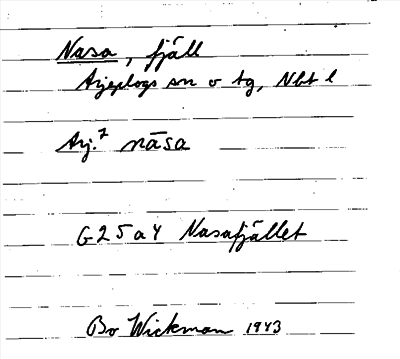 Nasa, fjäll
Arjeplogs sn o tg, Nbt l
Arj.² nāsa
G25a4 Nasafjället
Bo Wickman 1943